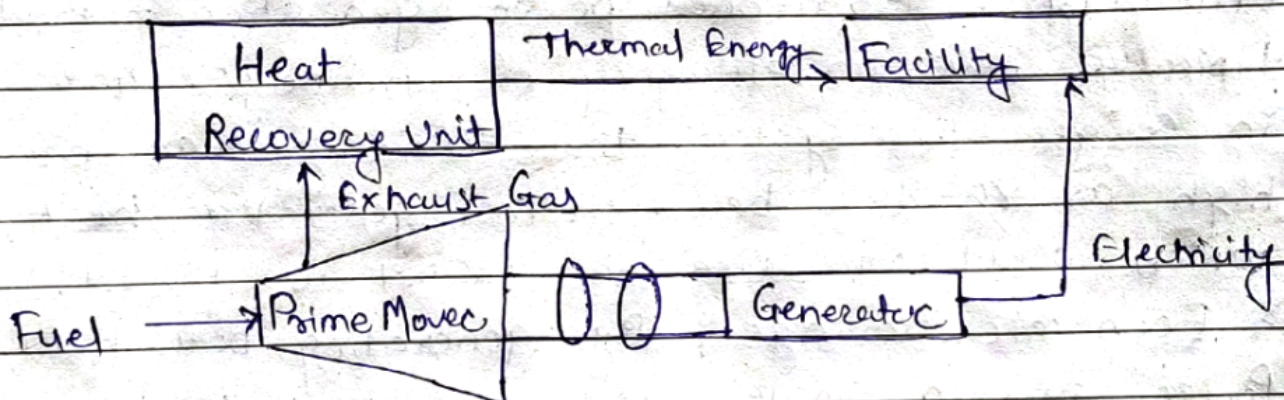 Heat
Recovery Unit
Thermal Energy
Facility
Exhaust Gas
Electricity
Fuel
Prime Mover
Generator